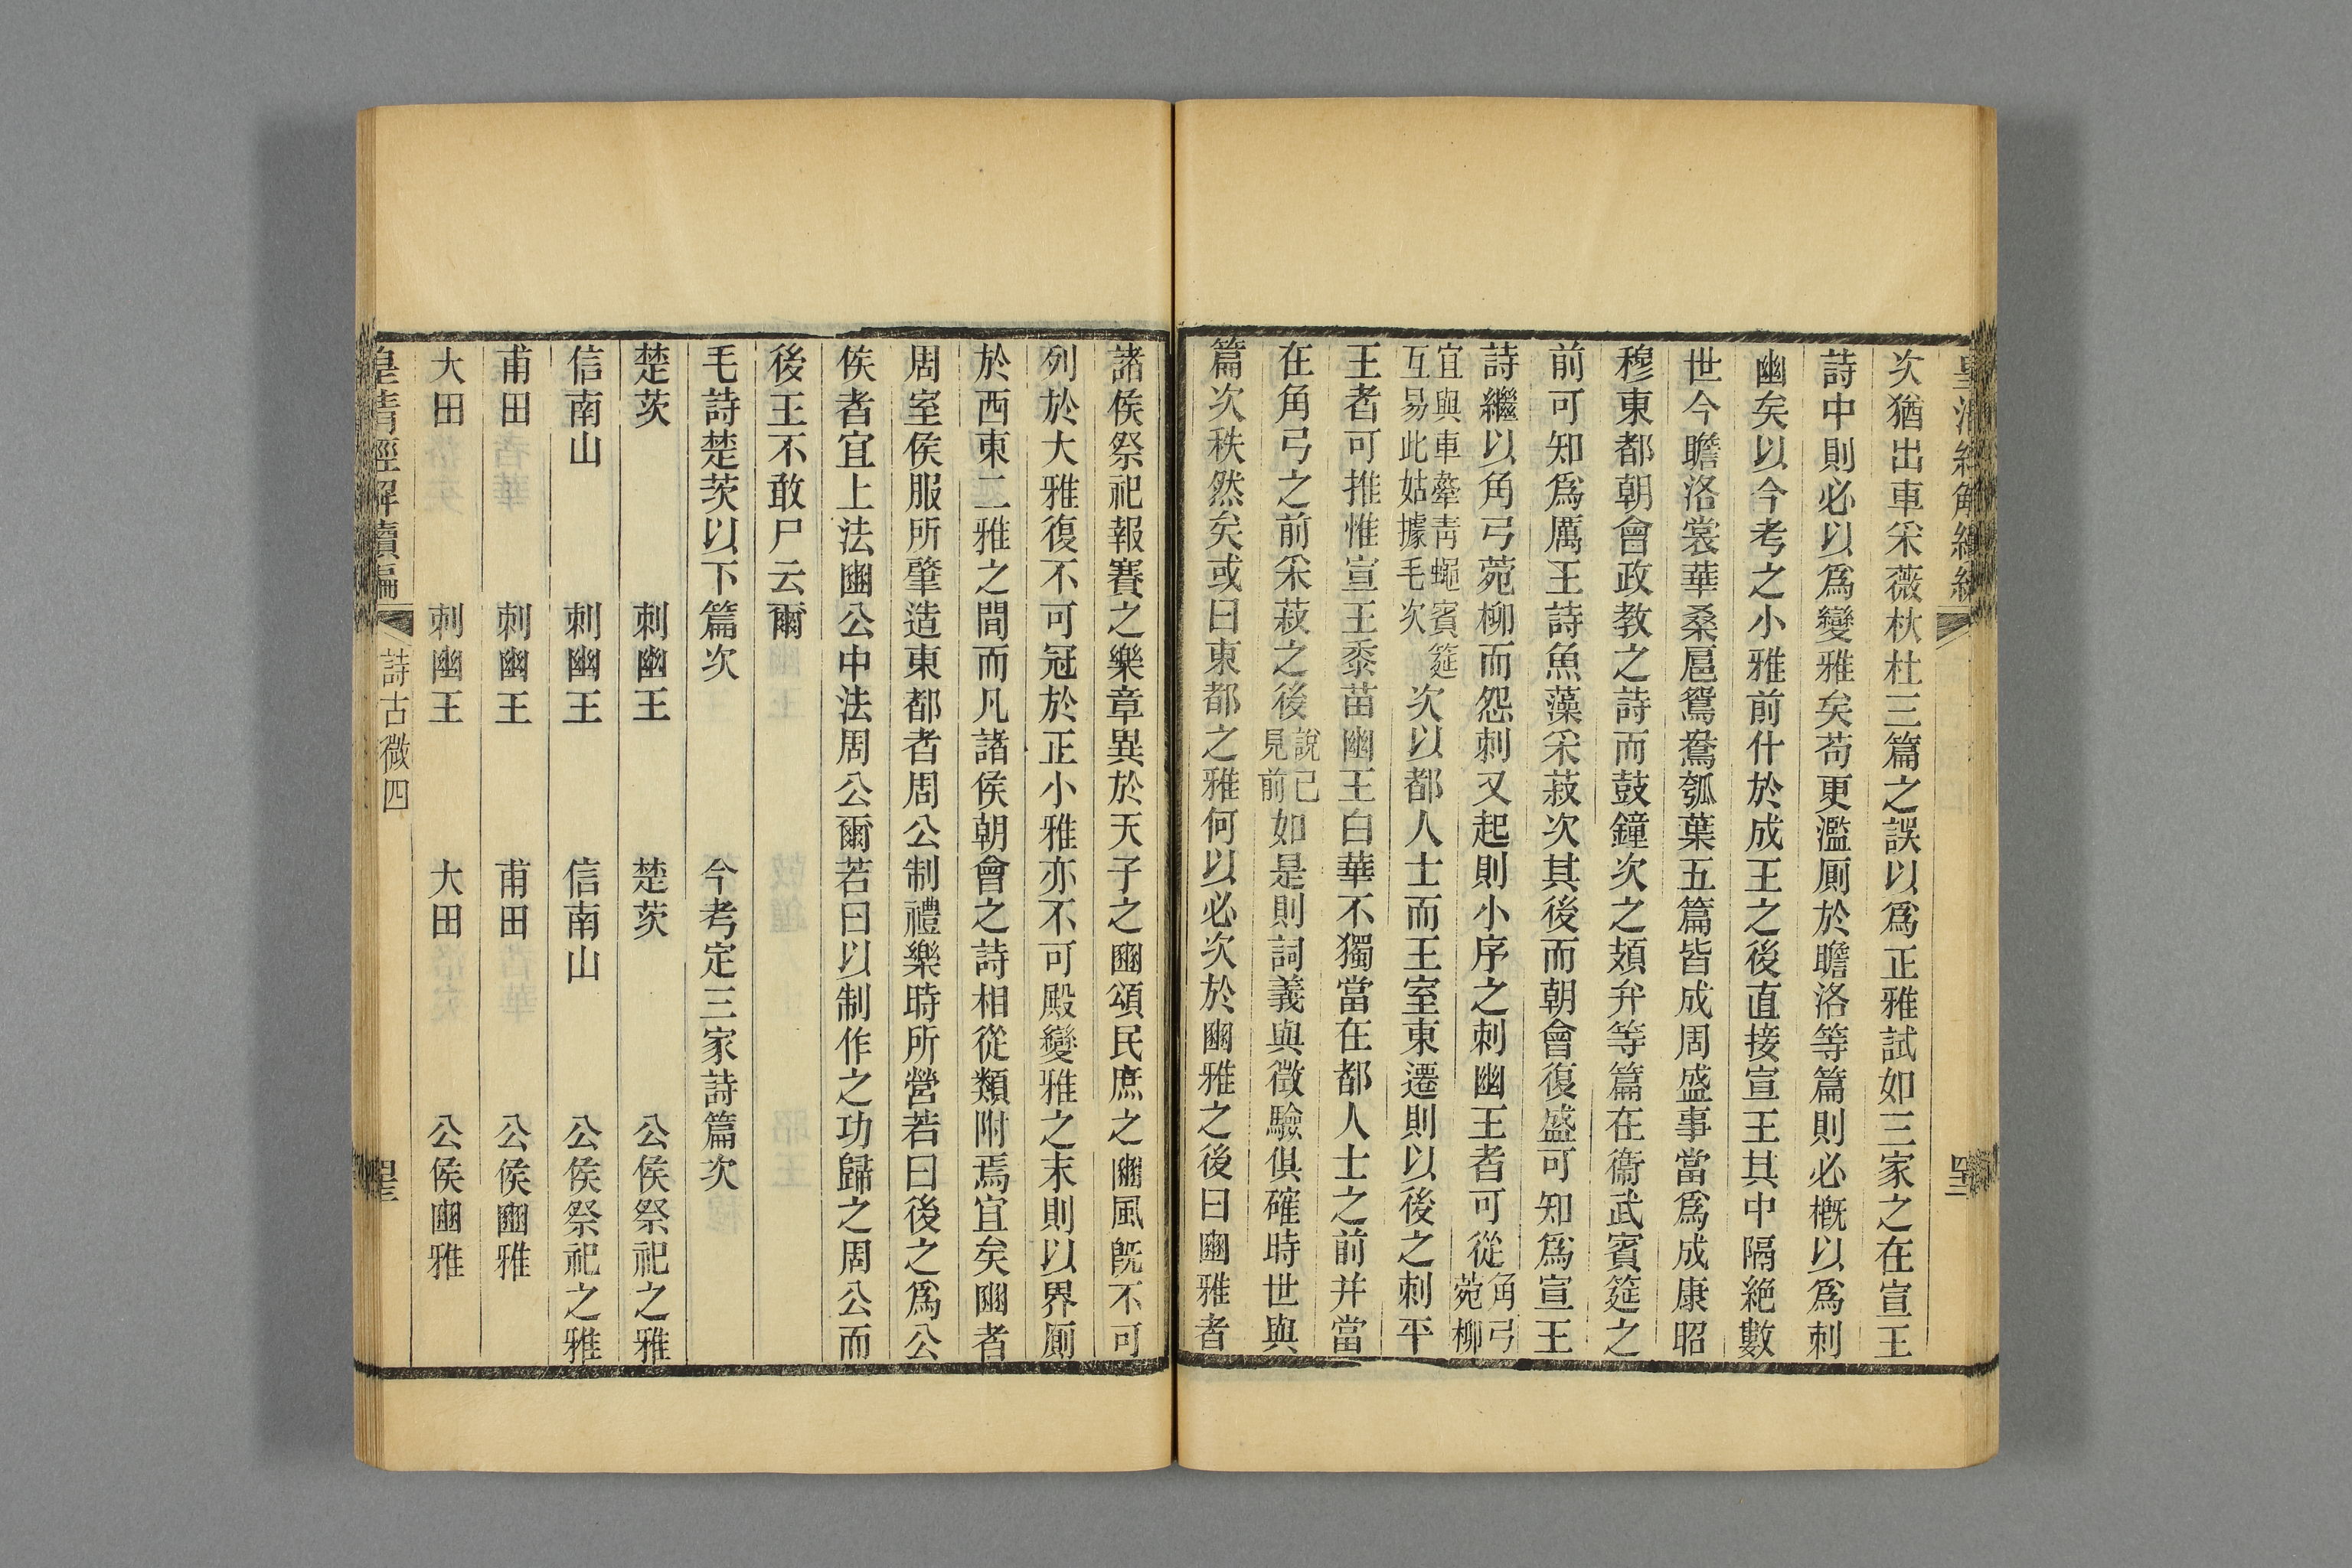 次猶出車采薇杕杜三篇之誤以爲正雅試如三家之在宣王
詩中則必以爲變雅矣苟更濫厠於瞻洛等篇則必槪以爲刺
幽矣以今考之小雅前什於成王之後直接宣王其中隔絶數
世今瞻洛裳華桑扈鴛鴦瓠葉五篇皆成周盛事當爲成康昭
穆東都朝會政教之詩而鼓鐘次之頍弁等篇在衞武賓筵之
前可知爲厲王詩魚藻采菽次其後而朝會復盛可知爲宣王
詩繼以角弓菀柳而怨刺又起則小序之刺幽王者可從角弓菀柳
宜與車舝靑蠅賓筵互易此姑據毛次次以都人士而王室東遷則以後之刺平
王者可推惟宣王黍苗幽王白華不獨當在都人士之前并當
在角弓之前采菽之後說已見前如是則詞義與徵驗俱確時世與
篇次秩然矣或曰東都之雅何以必次於豳雅之後曰豳雅者
諸侯祭祀報賽之樂章異於天子之豳頌民庶之豳風旣不可
列於大雅復不可冠於正小雅亦不可殿變雅之末則以界厠
於西東二雅之間而凡諸侯朝會之詩相從類附焉宜矣豳者
周室侯服所肇造東都者周公制禮樂時所營若曰後之爲公
侯者宜上法豳公中法周公爾若曰以制作之功歸之周公而
後王不敢尸云爾
毛詩楚茨以下篇次　今考定三家詩篇次
楚茨　刺幽王　楚茨　公侯祭祀之雅
信南山　刺幽王　信南山　公侯祭祀之雅
甫田　刺幽王　甫田　公侯豳雅
大田　刺幽王　大田　公侯豳雅
皇清經解續編　詩古微四